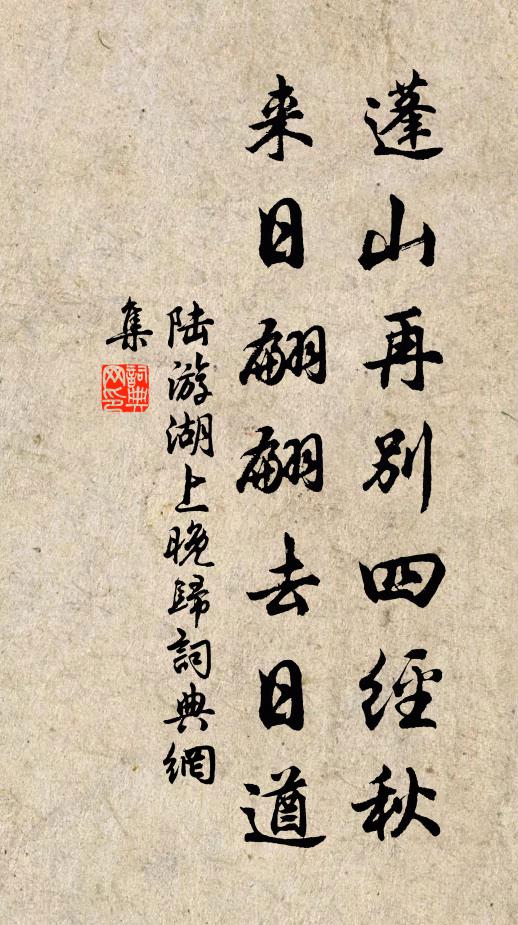 蓬山再别四經秋
来日翩翩去日遒
陆游湖上晚歸詞典網
集
詞典
网印